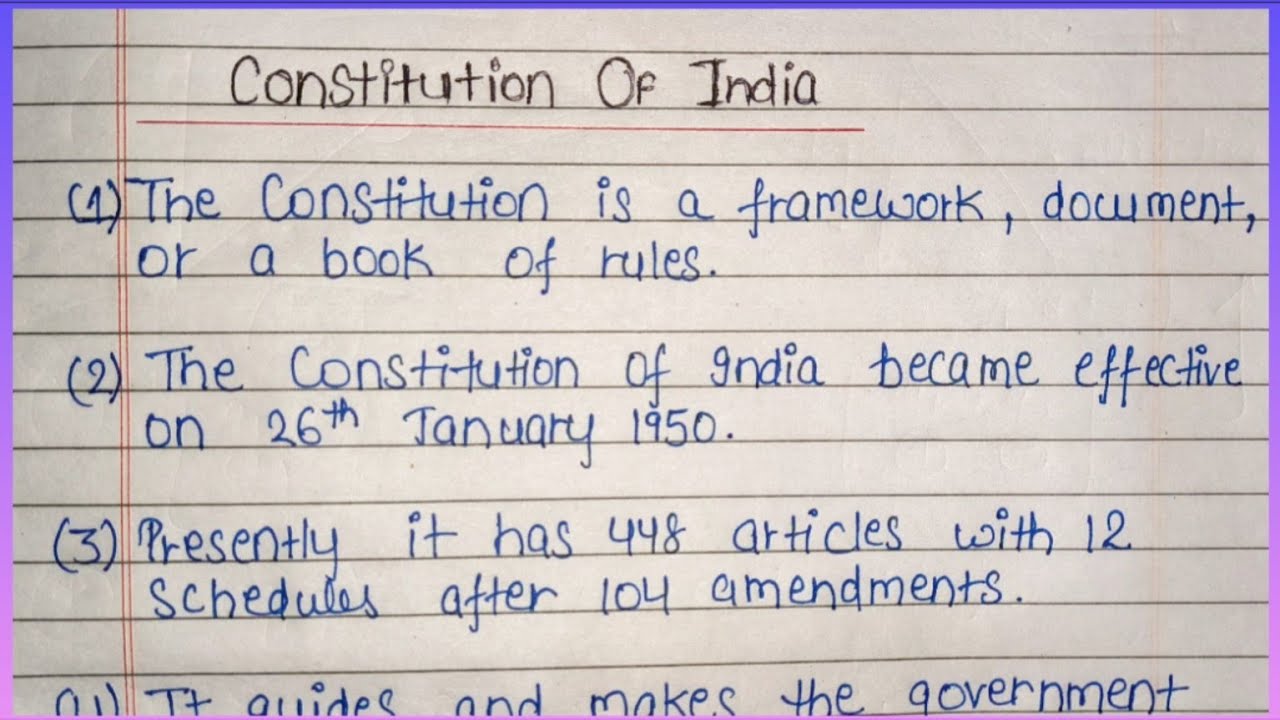 Constitution Of India
(1) The Constitution is a framework, document,
or a book of rules.
(2) The Constitution of India became effective
on 26th January 1950.
(3) Presently it has 448 articles with 12
schedules after 104 amendments.
(4) It guides and makes the government